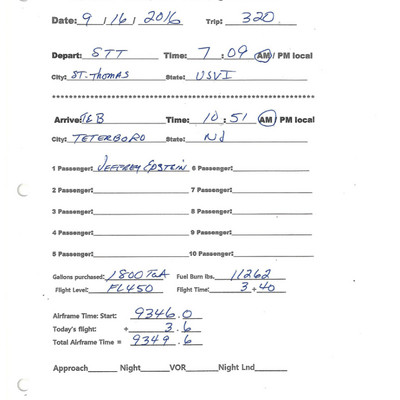 Date: 9 / 16 / 2016 Trip: 320
Depart: STT Time: 7 : 09 AM / PM local
City: ST. Thomas State: USVI
****************************************************
Arrive: TEB Time: 10 : 51 AM / PM local
City: TETERBORO State: NJ
1 Passenger: JEFFREY EPSTEIN 6 Passenger:
2 Passenger: 7 Passenger:
3 Passenger: 8 Passenger:
4 Passenger: 9 Passenger:
5 Passenger: 10 Passenger:
Gallons purchased: 1800 Fuel Burn lbs. 11262
Flight Level: FL450 Flight Time: 3 + 40
Airframe Time: Start: 9346.0
Today's flight: + 3.6
Total Airframe Time = 9349.6
Approach Night VOR Night Lnd